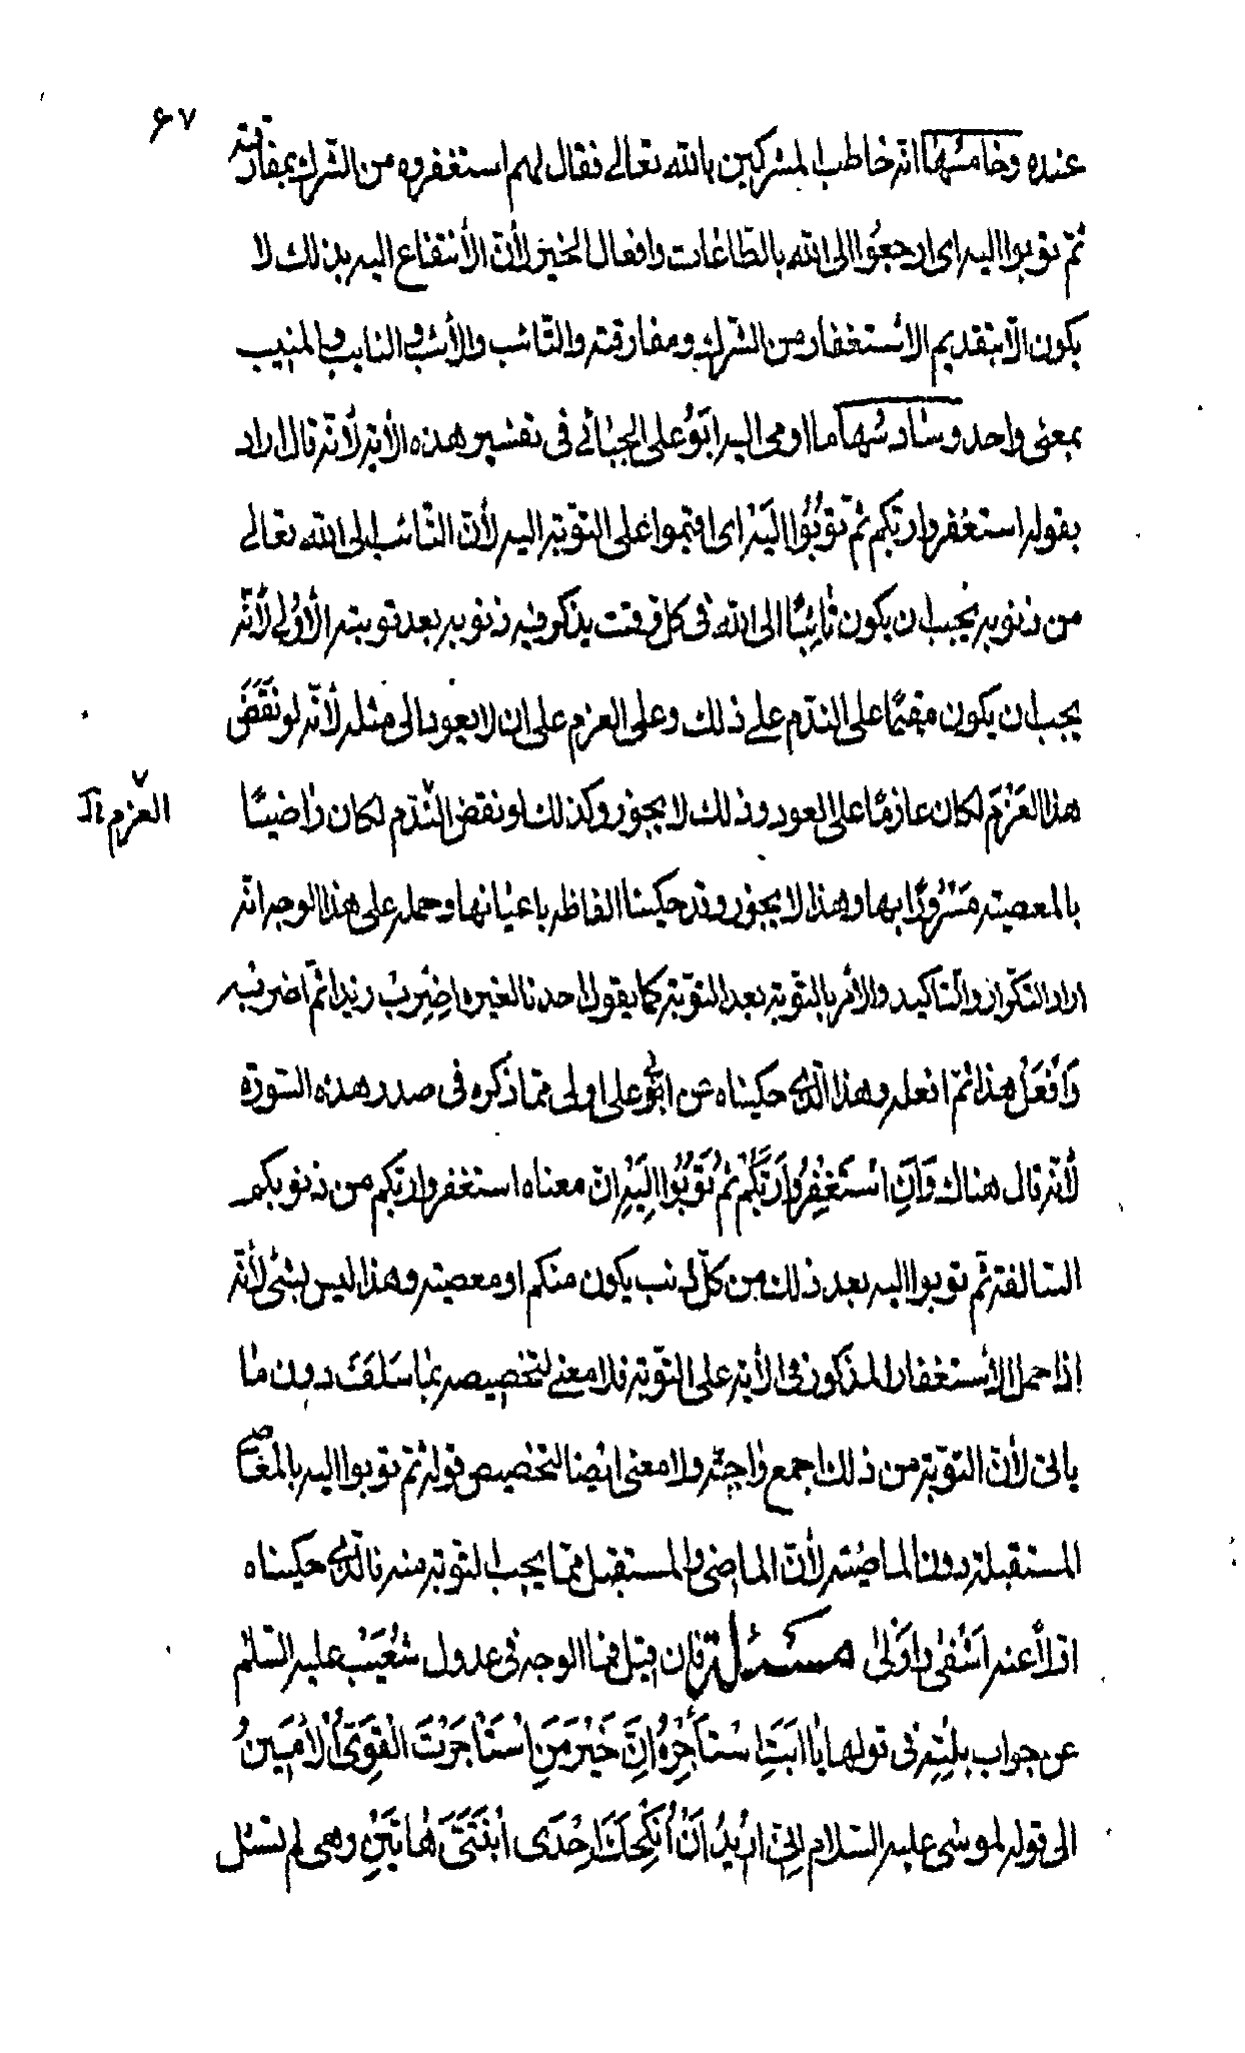 ۶۷
عنده وخامسها انه خاطب المشركين بالله تعالى فقال لهم استغفروه من الشرك بمفارقته
ثمّ توبوا اليه اى ارجعُوا الى الله بالطّاعات وافعال الخير لأنّ الأنتفاع اليه بذلك لا
يكون الّا بتقديم الأستغفار من الشرك ومفارقته والتّائب والأئب والنايب والمنيب
بمعنى واحد وسادسُها ما اومى اليه ابَوُ على الجبائى فى تفسير هذه الأية لأنّه قال اراد
بقوله استغفروا ربّكم ثمّ تُوبُوا اليَه اى اقيموا على التوبة اليه لأنّ التّائب الى الله تعالى
من ذنوبه يجب ان يكون تائبًا الى الله فى كل وقت يذكر فيه ذنوبه بعد توبته الأولى لأنّه
يجب ان يكون مقيمًا على النّدم على ذلك وعلى العزم على ان لا يعود الى مثله لأنّه لو نَقَضَ
هذا العَزمَ لكان عازمًا على العود وذلك لا يجوز وكذلك لو نقض النّدم لكان راضيًا
العزم
بالمعصية مَسْرُورًا بها وهذا لا يجوز وقد حكينا الفاظه باعيانها وحمله على هذا الوجه انّه
اراد التكرار والتّاكيد والأمر بالتّوبة بعد التوبة كما يقول احدنا لغيره اضرِب زيدا ثمّ اضربه
وَافعَل هذا ثمّ افعله وهذا الّذى حكيناه عن ابى على اولى ممّا ذكره فى صدر هذه السّورة
لأنّه قال هناك وَاَنِ اسْتَغْفِرُوا رَبَّكُمْ ثُمَّ تُوبُوا اِلَيْهِ انّ معناه استغفروا ربّكم من ذنوبكم
السّالفة ثمّ توبوا اليه بعد ذلك من كلّ ذنب يكون منكم او معصية وهذا ليس بشئ لأنّه
اذا حمل الأستغفار المذكور فى الأية على التّوبة فلا معنى لتخصيصه بما سَلَفَ دون ما
ياتى لأنّ التوبة من ذلك اجمع واجبة ولا معنى ايضا لتخصيص قوله ثمّ توبوا اليه بالمعاصى
المستقبلة دون الماضية لأنّ الماضى والمستقبل ممّا يجب التوبة منه فالّذى حكيناه
اوّلاً عنه اَشفى واَولى مسئلة فان قيل فما الوجه فى عدول شُعَيْب عليه السّلم
عن جواب بنته فى قولها يا اَبَتِ اسْتَأْجِرْهُ اِنَّ خَيْرَ مَنِ اسْتَأْجَرْتَ الْقَوِىُّ الْأَمِينُ
الى قوله لموسى عليه السّلام اِنّى اُرِيدُ اَنْ اُنْكِحَكَ اِحْدَى ابْنَتَىَّ هَاتَيْنِ وهى لم تسئل